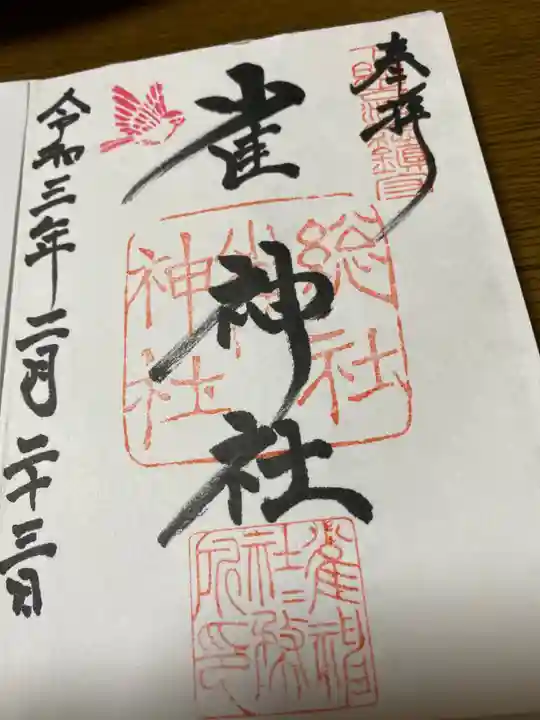 奉拝
雀神社
総社
雀
神社
雀神
社務
令和三年二月二十三日